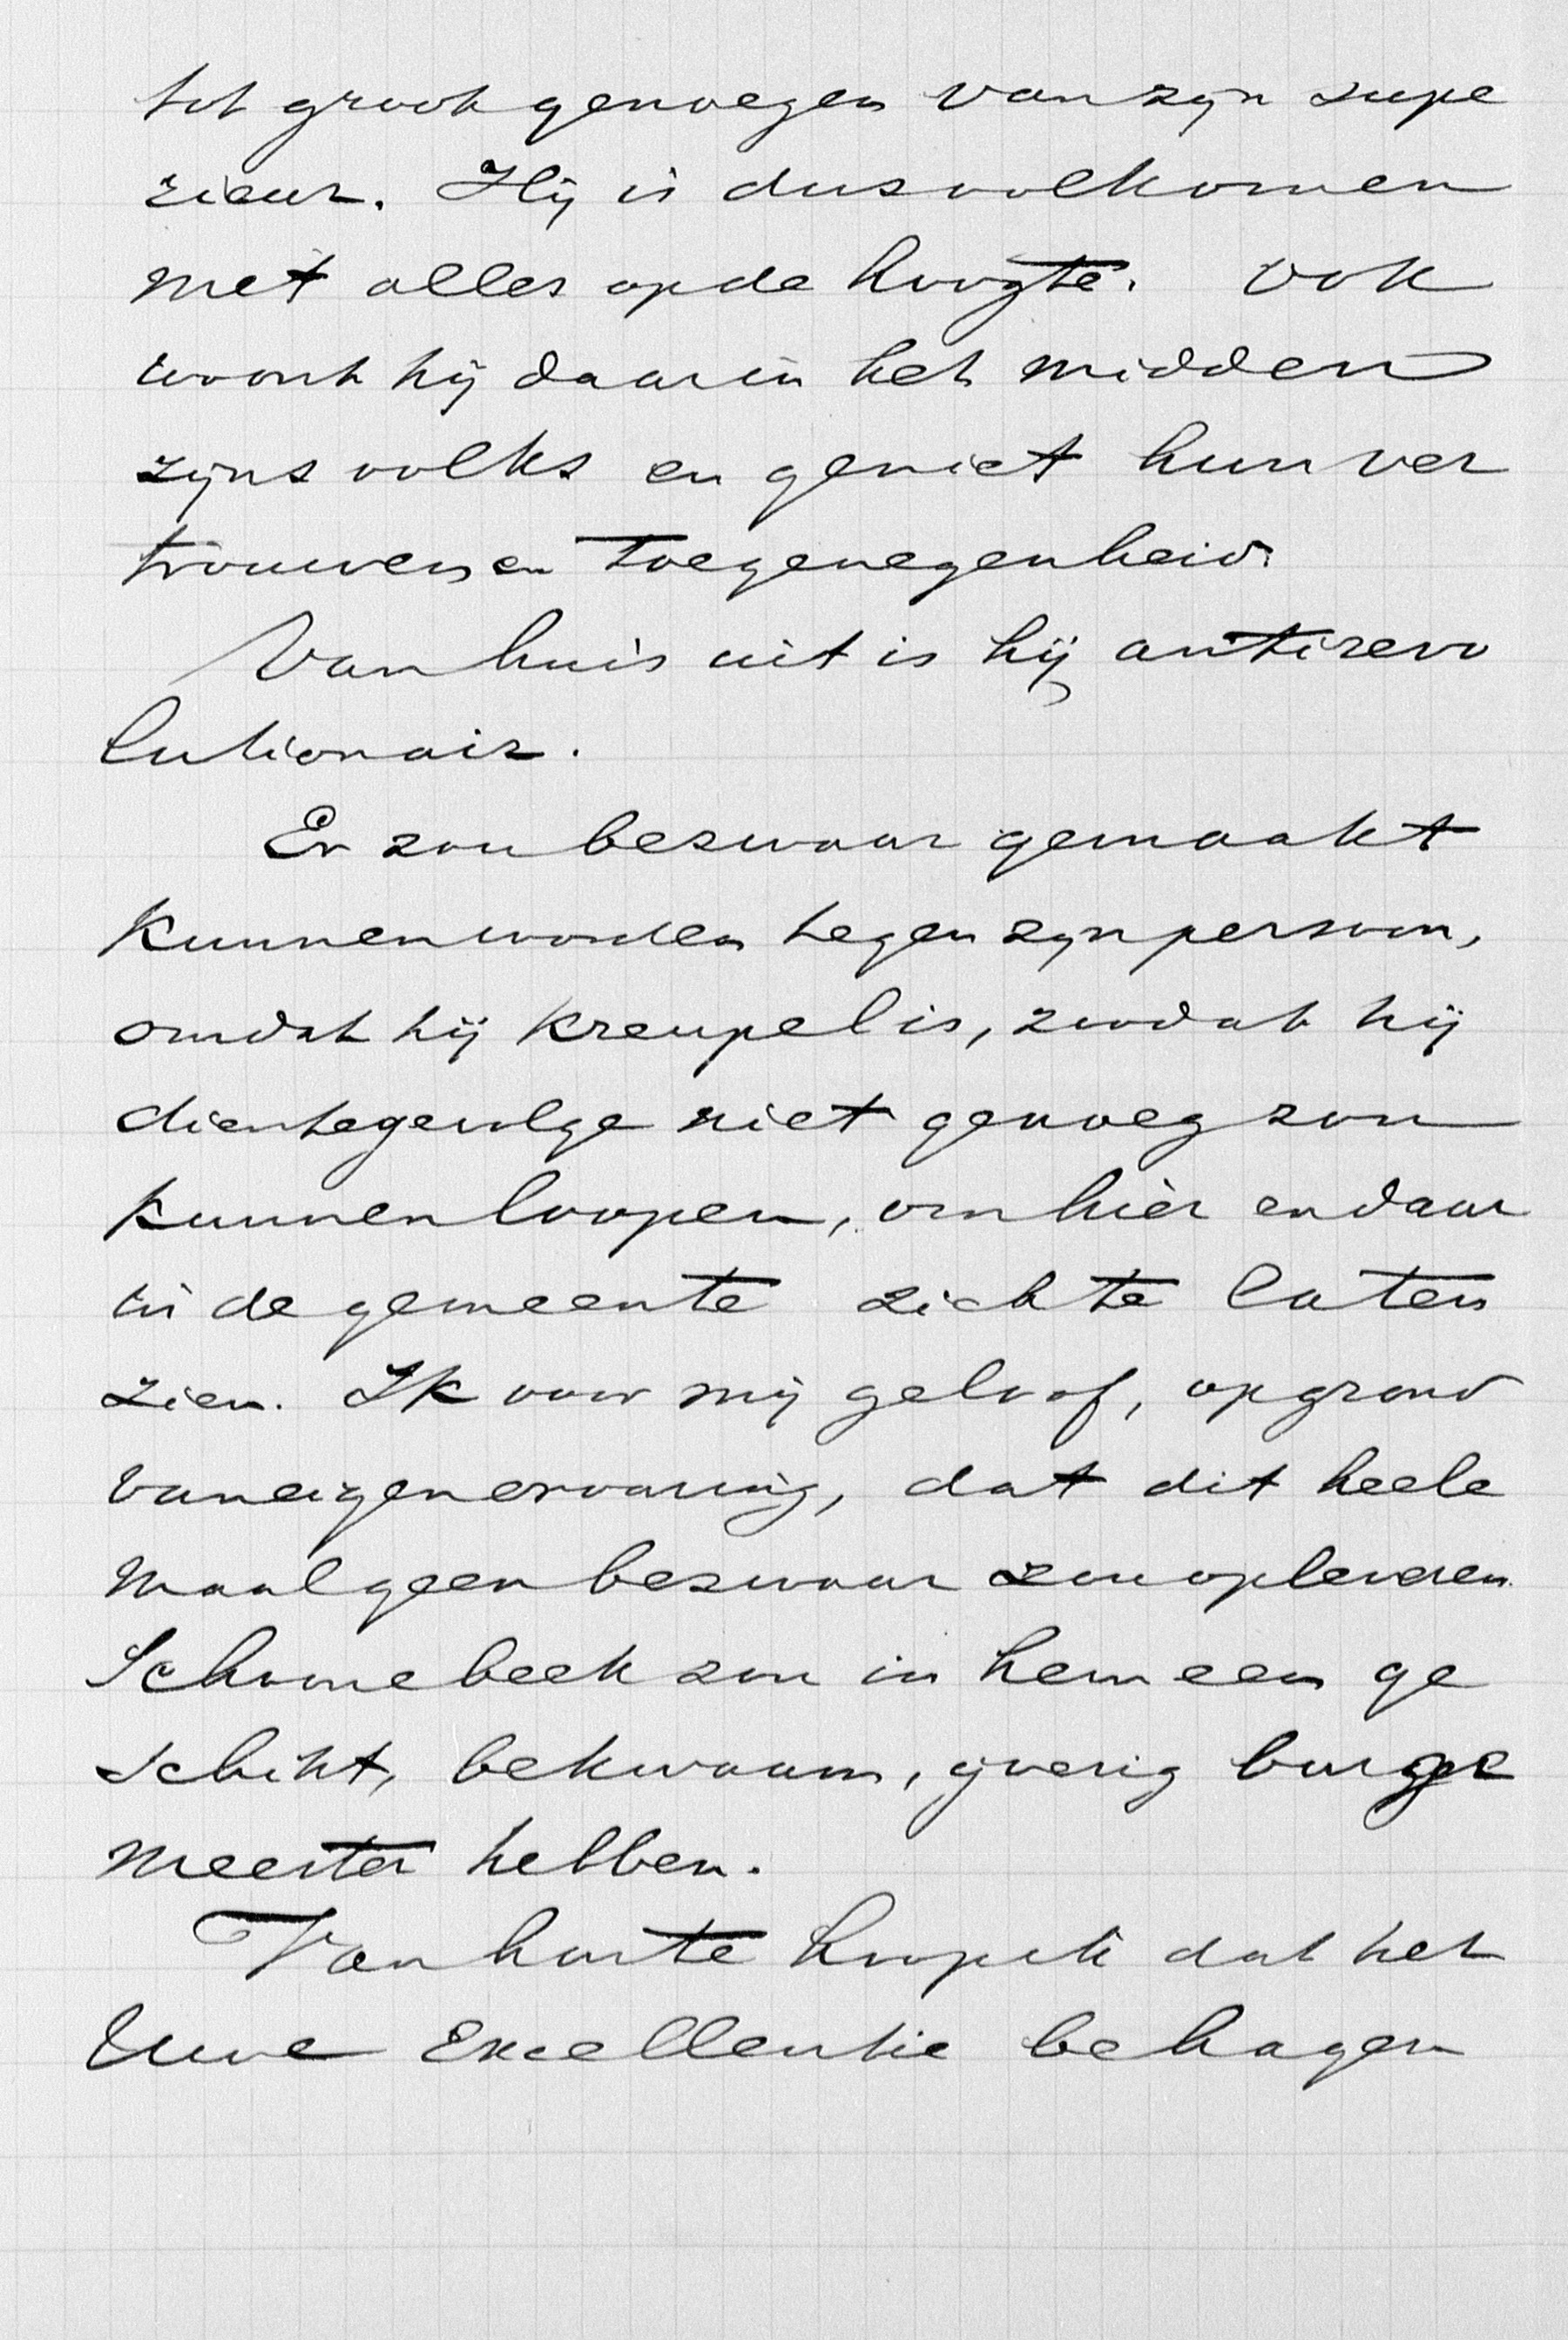 tot groot genoegen van zijn supe
rieur. Hij is dus volkomen
met alles op de hoogte. Ook
woont hij daar in het midden
zijns volks en geniet hun ver
trouwen en toegenegenheid.
Van huis uit is hij antirevo
lutionair.
Er zou bezwaar gemaakt
kunnen worden tegen zijn persoon,
omdat hij kreupel is, zoodat hij
dientegevolge niet genoeg zou
kunnen loopen, om hier en daar
in de gemeente zich te laten
zien. Ik voor mij geloof, op grond
van eigen ervaring, dat dit heele
maal geen bezwaar zou opleveren.
Schoonebeek zou in hem een ge
schikt, bekwaam, ijverig burge
meester hebben.
Van harte hoop ik dat het
Uwe Excellentie behagen